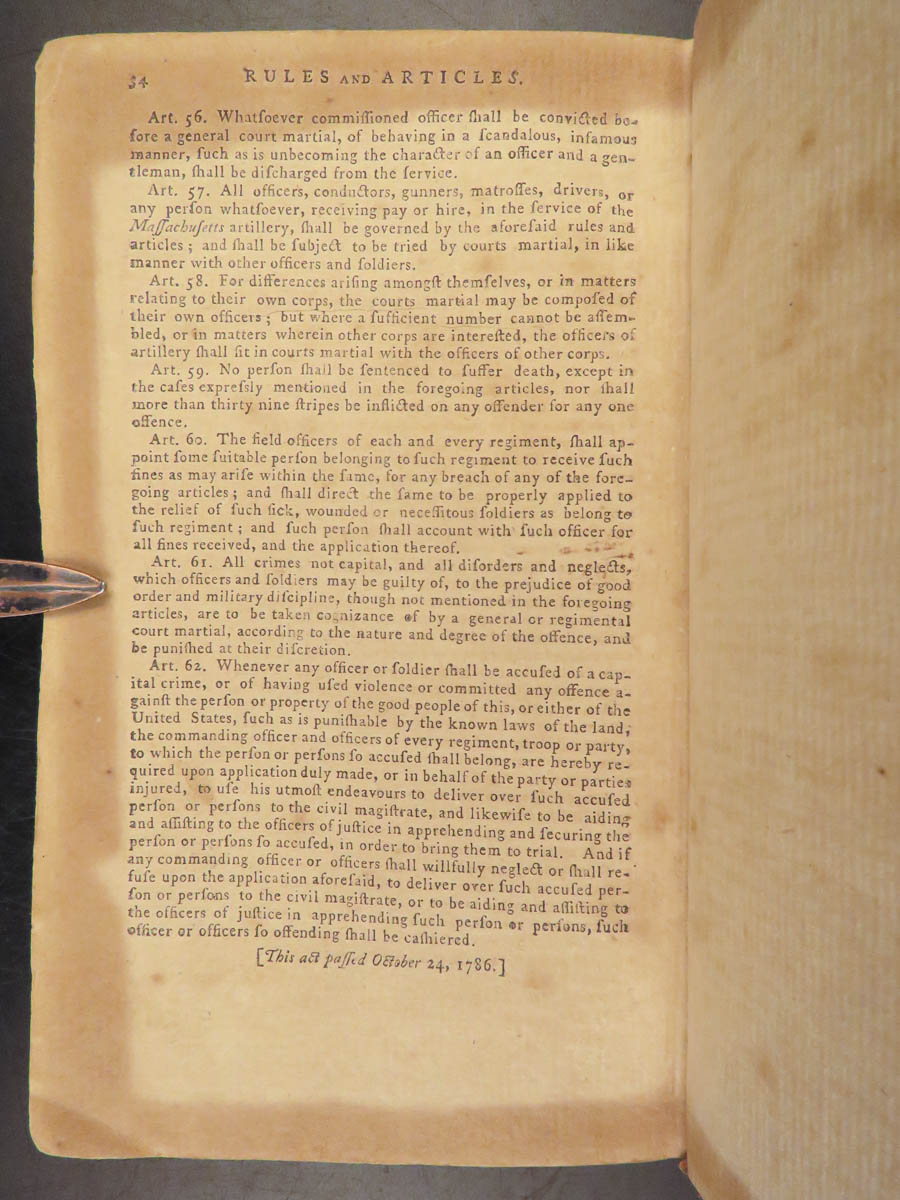 34
RULES AND ARTICLES.
Art. 56. Whatſoever commiſſioned officer ſhall be convicted be-
fore a general court martial, of behaving in a ſcandalous, infamous
manner, ſuch as is unbecoming the character of an officer and a gen-
tleman, ſhall be diſcharged from the ſervice.
Art. 57. All officers, conductors, gunners, matroſſes, drivers, or
any perſon whatſoever, receiving pay or hire, in the ſervice of the
Maſſachuſetts artillery, ſhall be governed by the aforeſaid rules and
articles; and ſhall be ſubject to be tried by courts martial, in like
manner with other officers and ſoldiers.
Art. 58. For differences ariſing amongſt themſelves, or in matters
relating to their own corps, the courts martial may be compoſed of
their own officers; but where a ſufficient number cannot be aſſem-
bled, or in matters wherein other corps are intereſted, the officers of
artillery ſhall ſit in courts martial with the officers of other corps.
Art. 59. No perſon ſhall be ſentenced to ſuffer death, except in
the caſes expreſsly mentioned in the foregoing articles, nor ſhall
more than thirty nine ſtripes be inflicted on any offender for any one
offence.
Art. 60. The field officers of each and every regiment, ſhall ap-
point ſome ſuitable perſon belonging to ſuch regiment to receive ſuch
fines as may ariſe within the ſame, for any breach of any of the fore-
going articles; and ſhall direct the ſame to be properly applied to
the relief of ſuch ſick, wounded or neceſſitous ſoldiers as belong to
ſuch regiment; and ſuch perſon ſhall account with ſuch officer for
all fines received, and the application thereof.
Art. 61. All crimes not capital, and all diſorders and neglects,
which officers and ſoldiers may be guilty of, to the prejudice of good
order and military diſcipline, though not mentioned in the foregoing
articles, are to be taken cognizance of by a general or regimental
court martial, according to the nature and degree of the offence, and
be puniſhed at their diſcretion.
Art. 62. Whenever any officer or ſoldier ſhall be accuſed of a cap-
ital crime, or of having uſed violence or committed any offence a-
gainſt the perſon or property of the good people of this, or either of the
United States, ſuch as is puniſhable by the known laws of the land,
the commanding officer and officers of every regiment, troop or party,
to which the perſon or perſons ſo accuſed ſhall belong, are hereby re-
quired upon application duly made, or in behalf of the party or parties
injured, to uſe his utmoſt endeavours to deliver over ſuch accuſed
perſon or perſons to the civil magiſtrate, and likewiſe to be aiding
and aſſiſting to the officers of juſtice in apprehending and ſecuring the
perſon or perſons ſo accuſed, in order to bring them to trial. And if
any commanding officer or officers ſhall willfully neglect or ſhall re-
fuſe upon the application aforeſaid, to deliver over ſuch accuſed per-
ſon or perſons to the civil magiſtrate, or to be aiding and aſſiſting to
the officers of juſtice in apprehending ſuch perſon or perſons, ſuch
officer or officers ſo offending ſhall be caſhiered.
[This act paſſed October 24, 1786.]